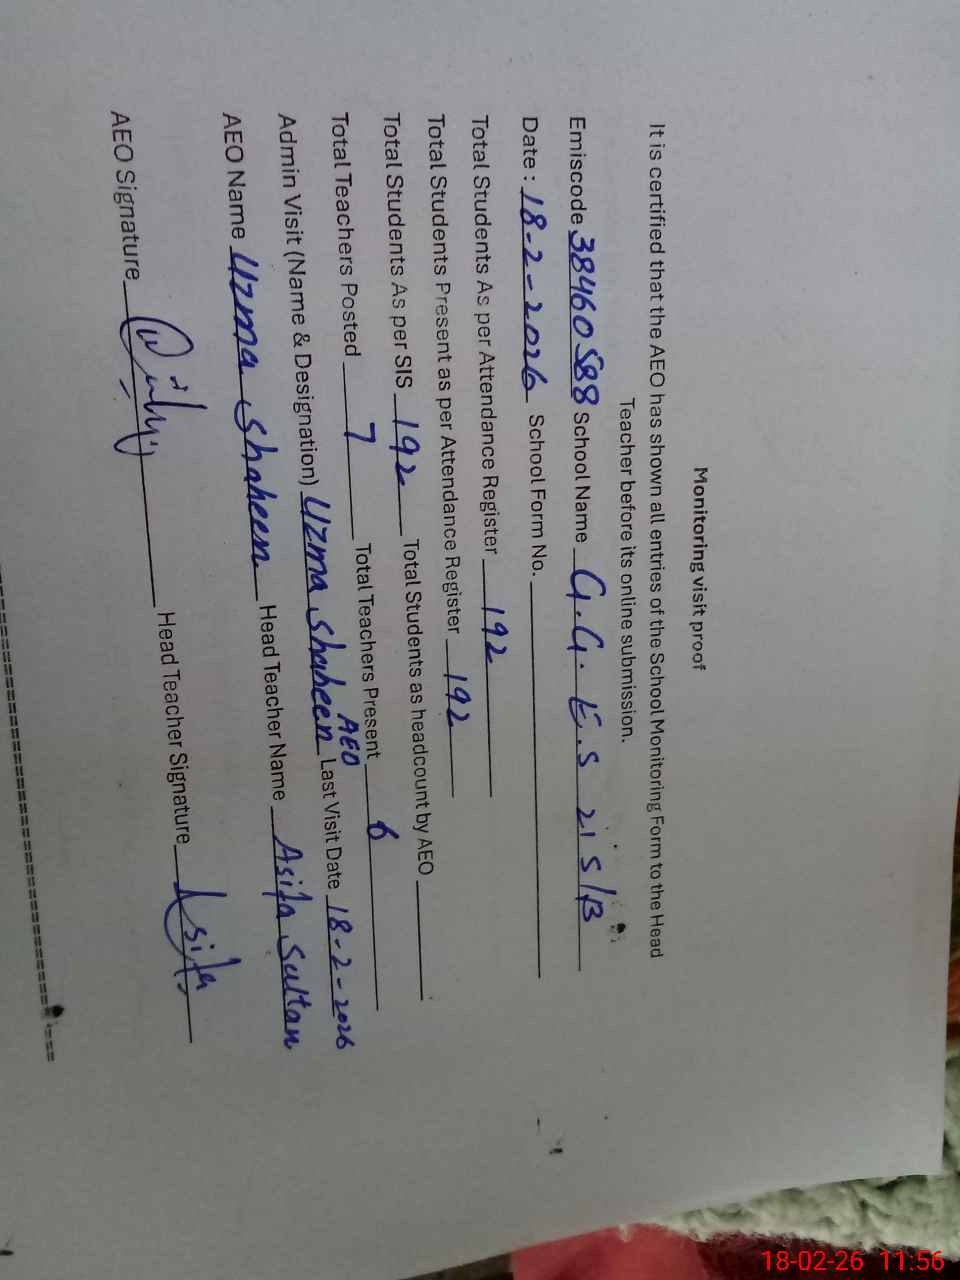 Monitoring visit proof
It is certified that the AEO has shown all entries of the School Monitoring Form to the Head
Teacher before its online submission.
Emiscode 38460588 School Name G.G.E.S 21 S/B
Date : 18-2-2026 School Form No.
Total Students As per Attendance Register 192
Total Students Present as per Attendance Register 192
Total Students As per SIS 192 Total Students as headcount by AEO
Total Teachers Posted 7 Total Teachers Present 6
AEO
Admin Visit (Name & Designation) Uzma Shaheen Last Visit Date 18-2-2026
AEO Name Uzma Shaheen Head Teacher Name Asifa Sultan
AEO Signature Head Teacher Signature Asifa
18-02-26 11:56